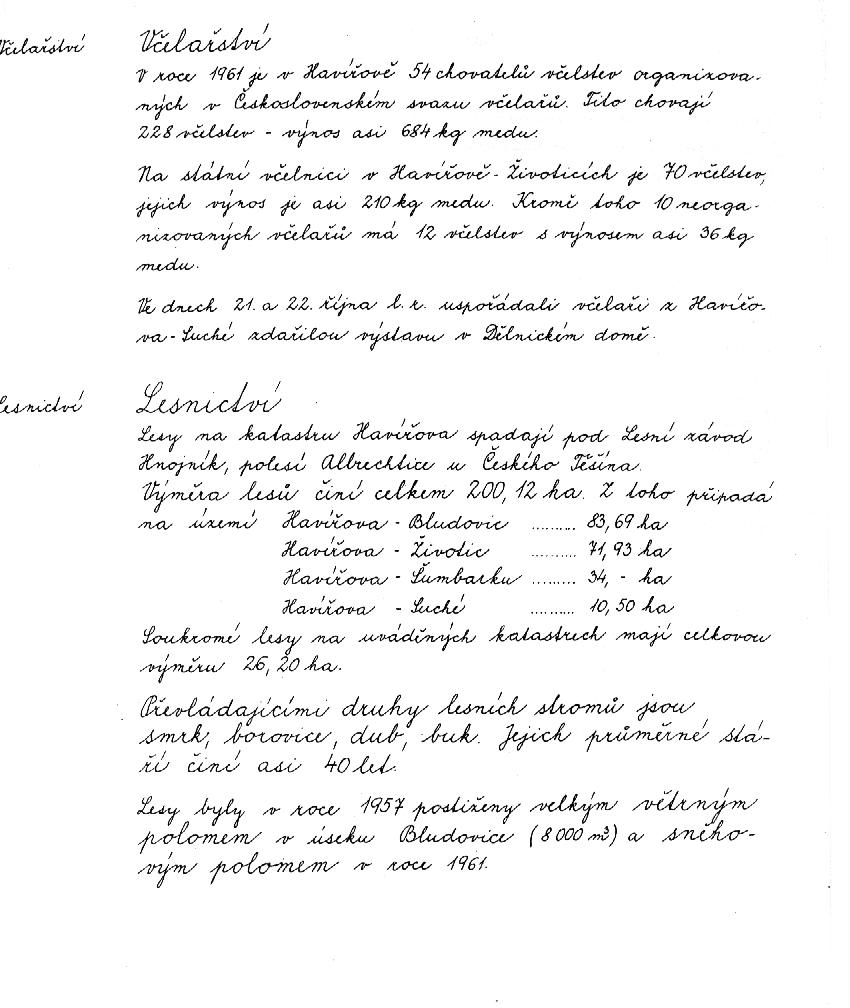 Včelařství
Včelařství
V roce 1961 je v Havířově 54 chovatelů včelstev organizova-
ných v Československém svazu včelařů. Tito chovají
228 včelstev - výnos asi 684 kg medu.
Na státní včelnici v Havířově-Životicích je 70 včelstev,
jejich výnos je asi 210 kg medu. Kromě toho 10 neorga-
nizovaných včelařů má 12 včelstev s výnosem asi 36 kg
medu.
Ve dnech 21. a 22. října t. r. uspořádali včelaři z Havířo-
va-Suché zdařilou výstavu v Dělnickém domě.
Lesnictví
Lesnictví
Lesy na katastru Havířova spadají pod Lesní závod
Hnojník, polesí Albrechtice u Českého Těšína.
Výměra lesů činí celkem 200,12 ha. Z toho připadá
na území Havířova - Bludovic .......... 83,69 ha
Havířova - Životic .......... 71,93 ha
Havířova - Šumbarku ......... 34,- ha
Havířova - Suché .......... 10,50 ha
Soukromé lesy na uváděných katastrech mají celkovou
výměru 26,20 ha.
Převládajícími druhy lesních stromů jsou
smrk, borovice, dub, buk. Jejich průměrné stá-
ří činí asi 40 let.
Lesy byly v roce 1957 postiženy velkým větrným
polomem v úseku Bludovice (8 000 m3) a sněho-
vým polomem v roce 1961.